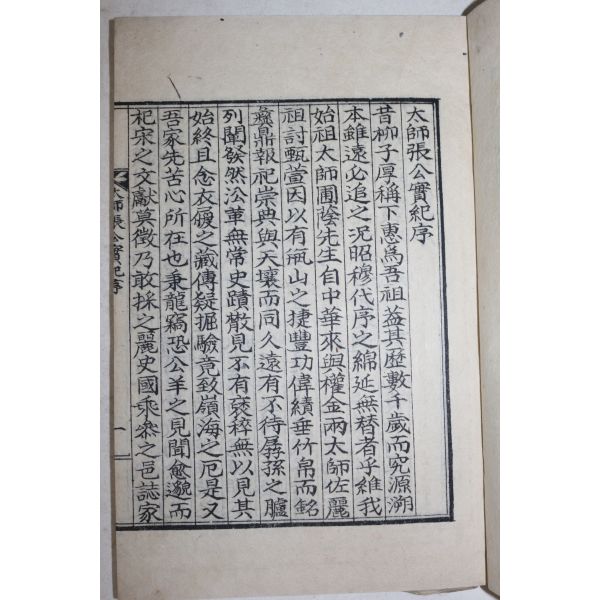 太師張公實紀序
昔柳子厚稱下惠爲吾祖盖其歷數千歲而究源溯
本雖遠必追之况昭穆代序之綿延無替者乎維我
始祖太師圃蔭先生自中華來與權金兩太師佐麗
祖討甄萱因以有甁山之捷豐功偉績垂竹帛而銘
彛鼎報祀崇典與天壤而同久遠有不待孱孫之臚
列闡發然沿革無常史蹟散見不有裒稡無以見其
始終且念衣履之藏傳疑掘驗竟致嶺海之厄是又
吾家先苦心所在也秉龍竊恐公羊之見聞愈邈而
杞宋之文獻莫徵乃敢採之麗史國乘叅之邑誌家
太師張公實紀序
一